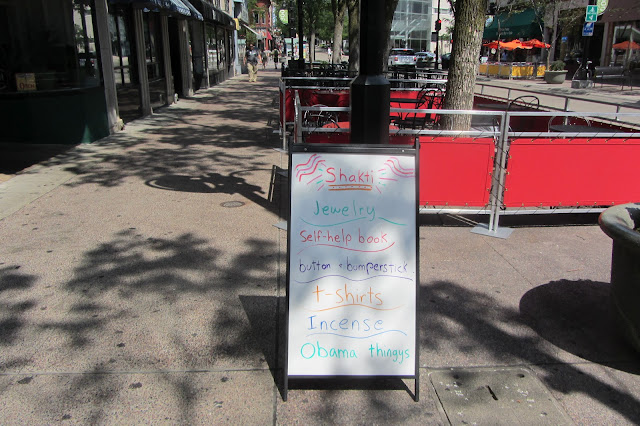 Shakti
Jewelry
Self-help book
button + bumperstick
t-shirts
Incense
Obama thingys